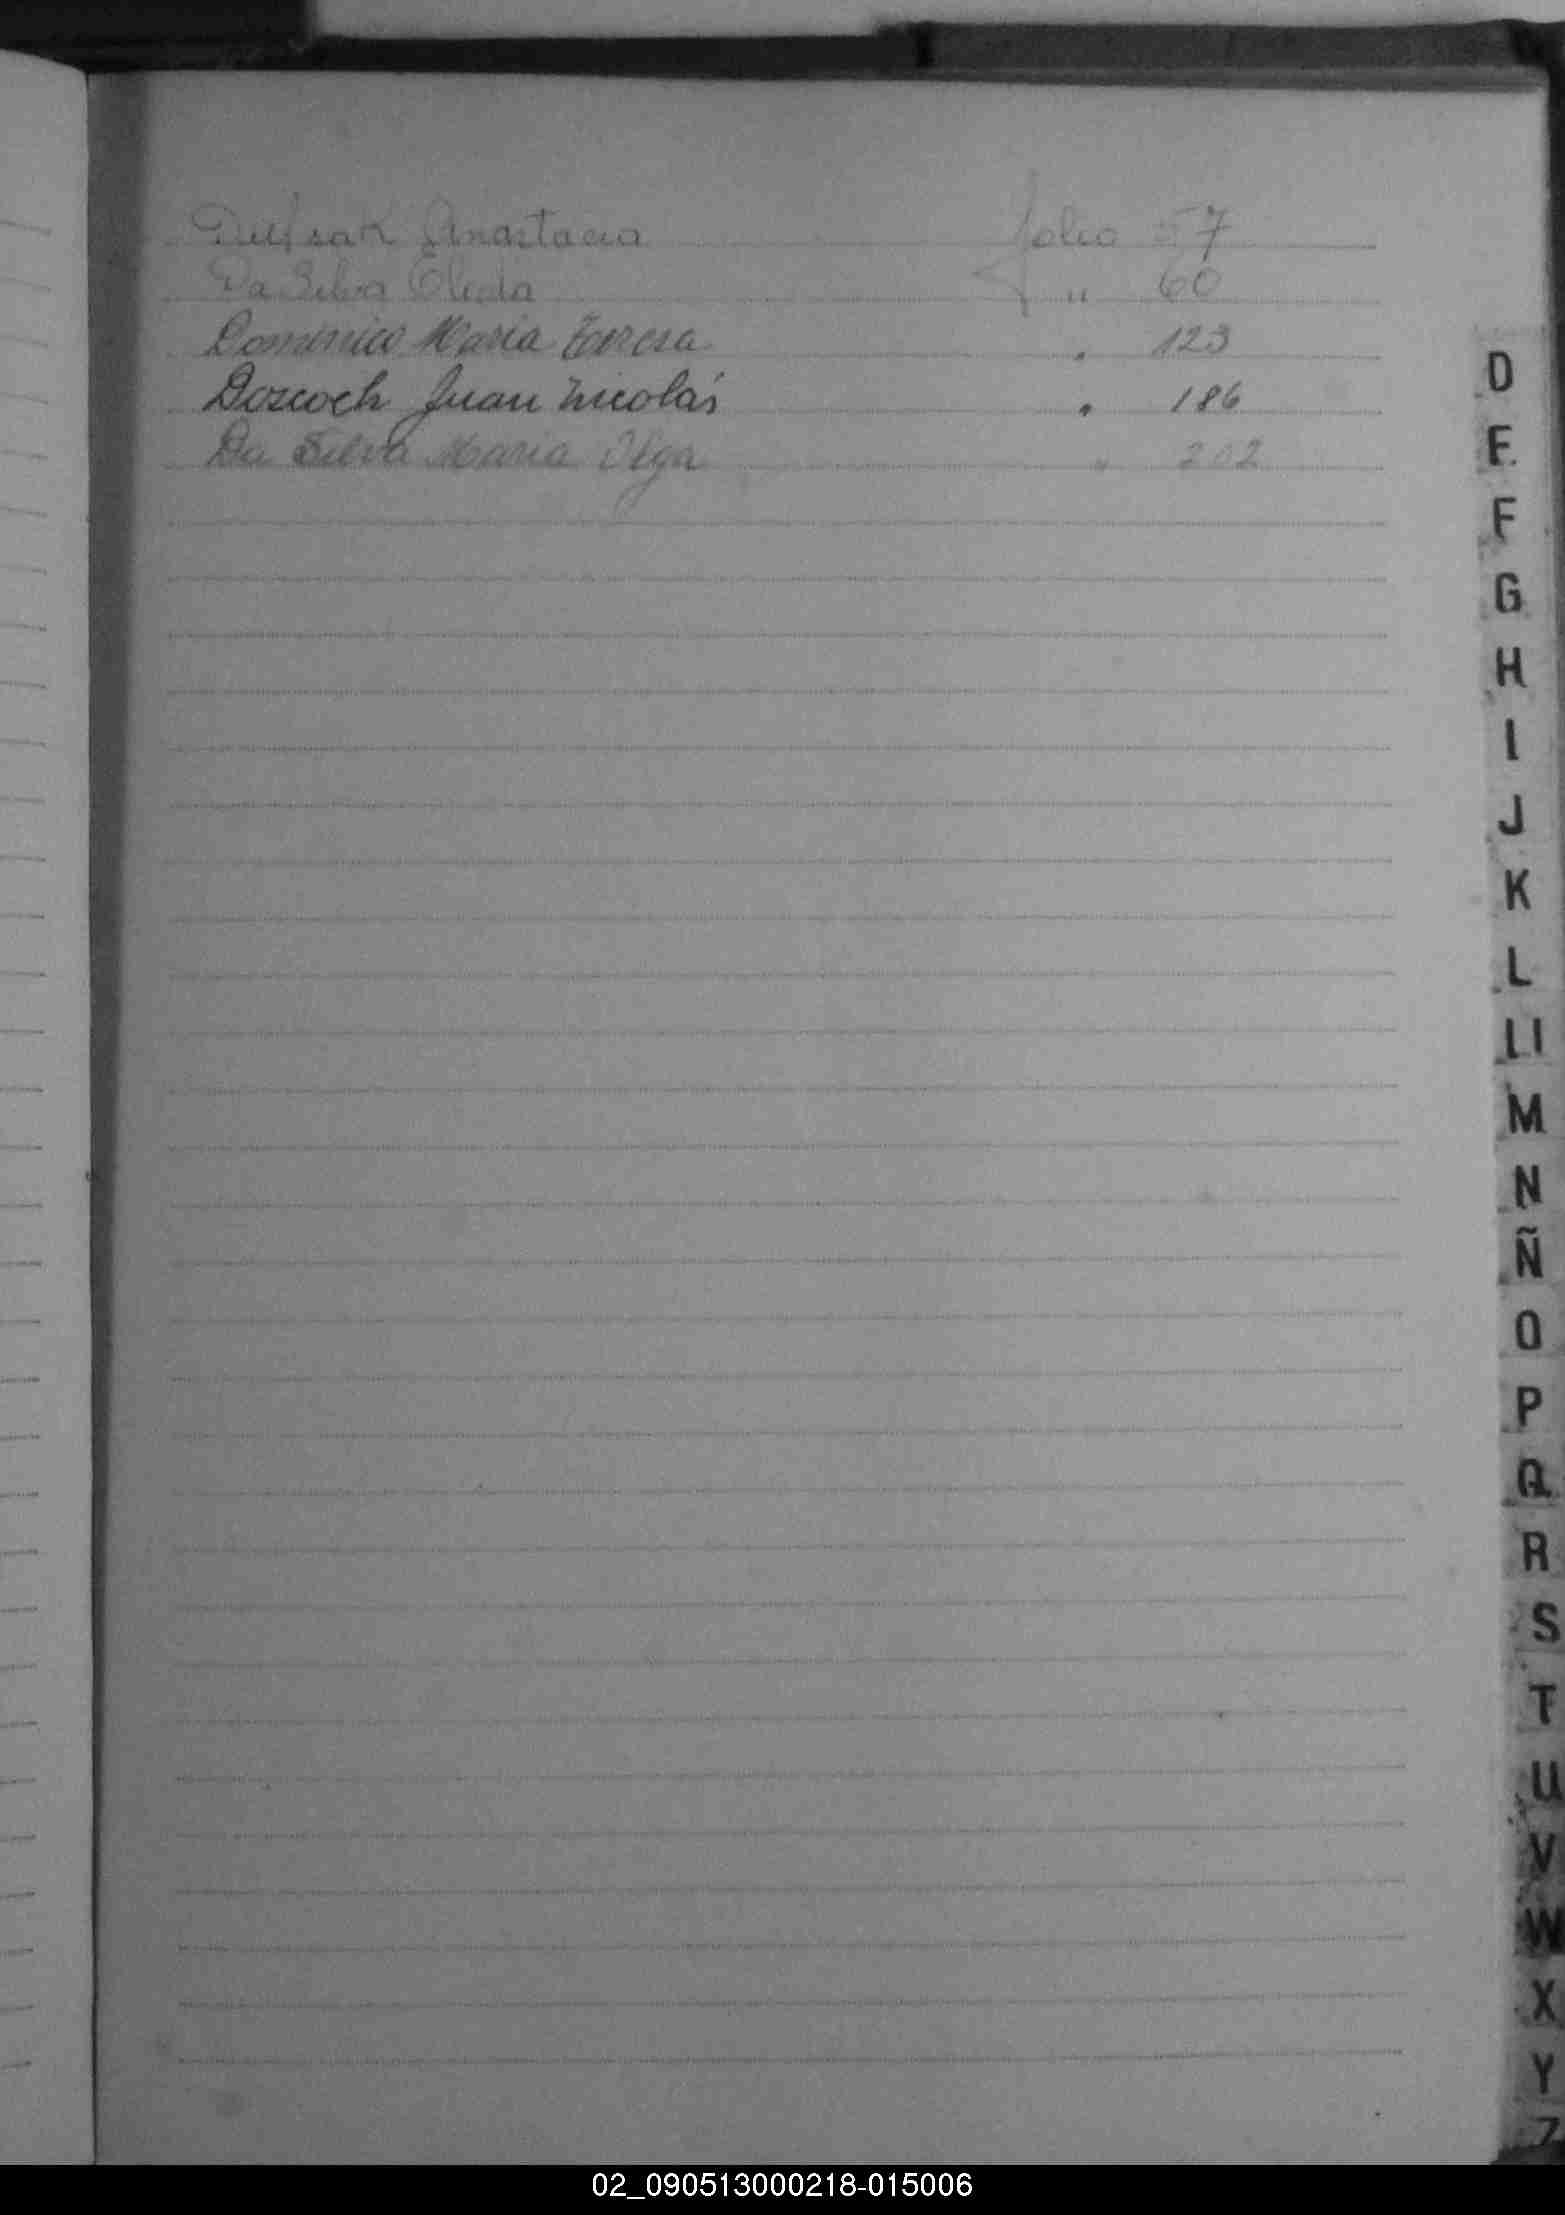 Anastacia folio 57
Da Silva Elida " 60
Dominico Maria Teresa " 123
Dozwoch Juan Nicolás " 186
Da Silva Maria Olga " 202
D
E
F
G
H
I
J
K
L
Ll
M
N
Ñ
O
P
Q
R
S
T
U
V
W
X
Y
Z
02_090513000218-015006